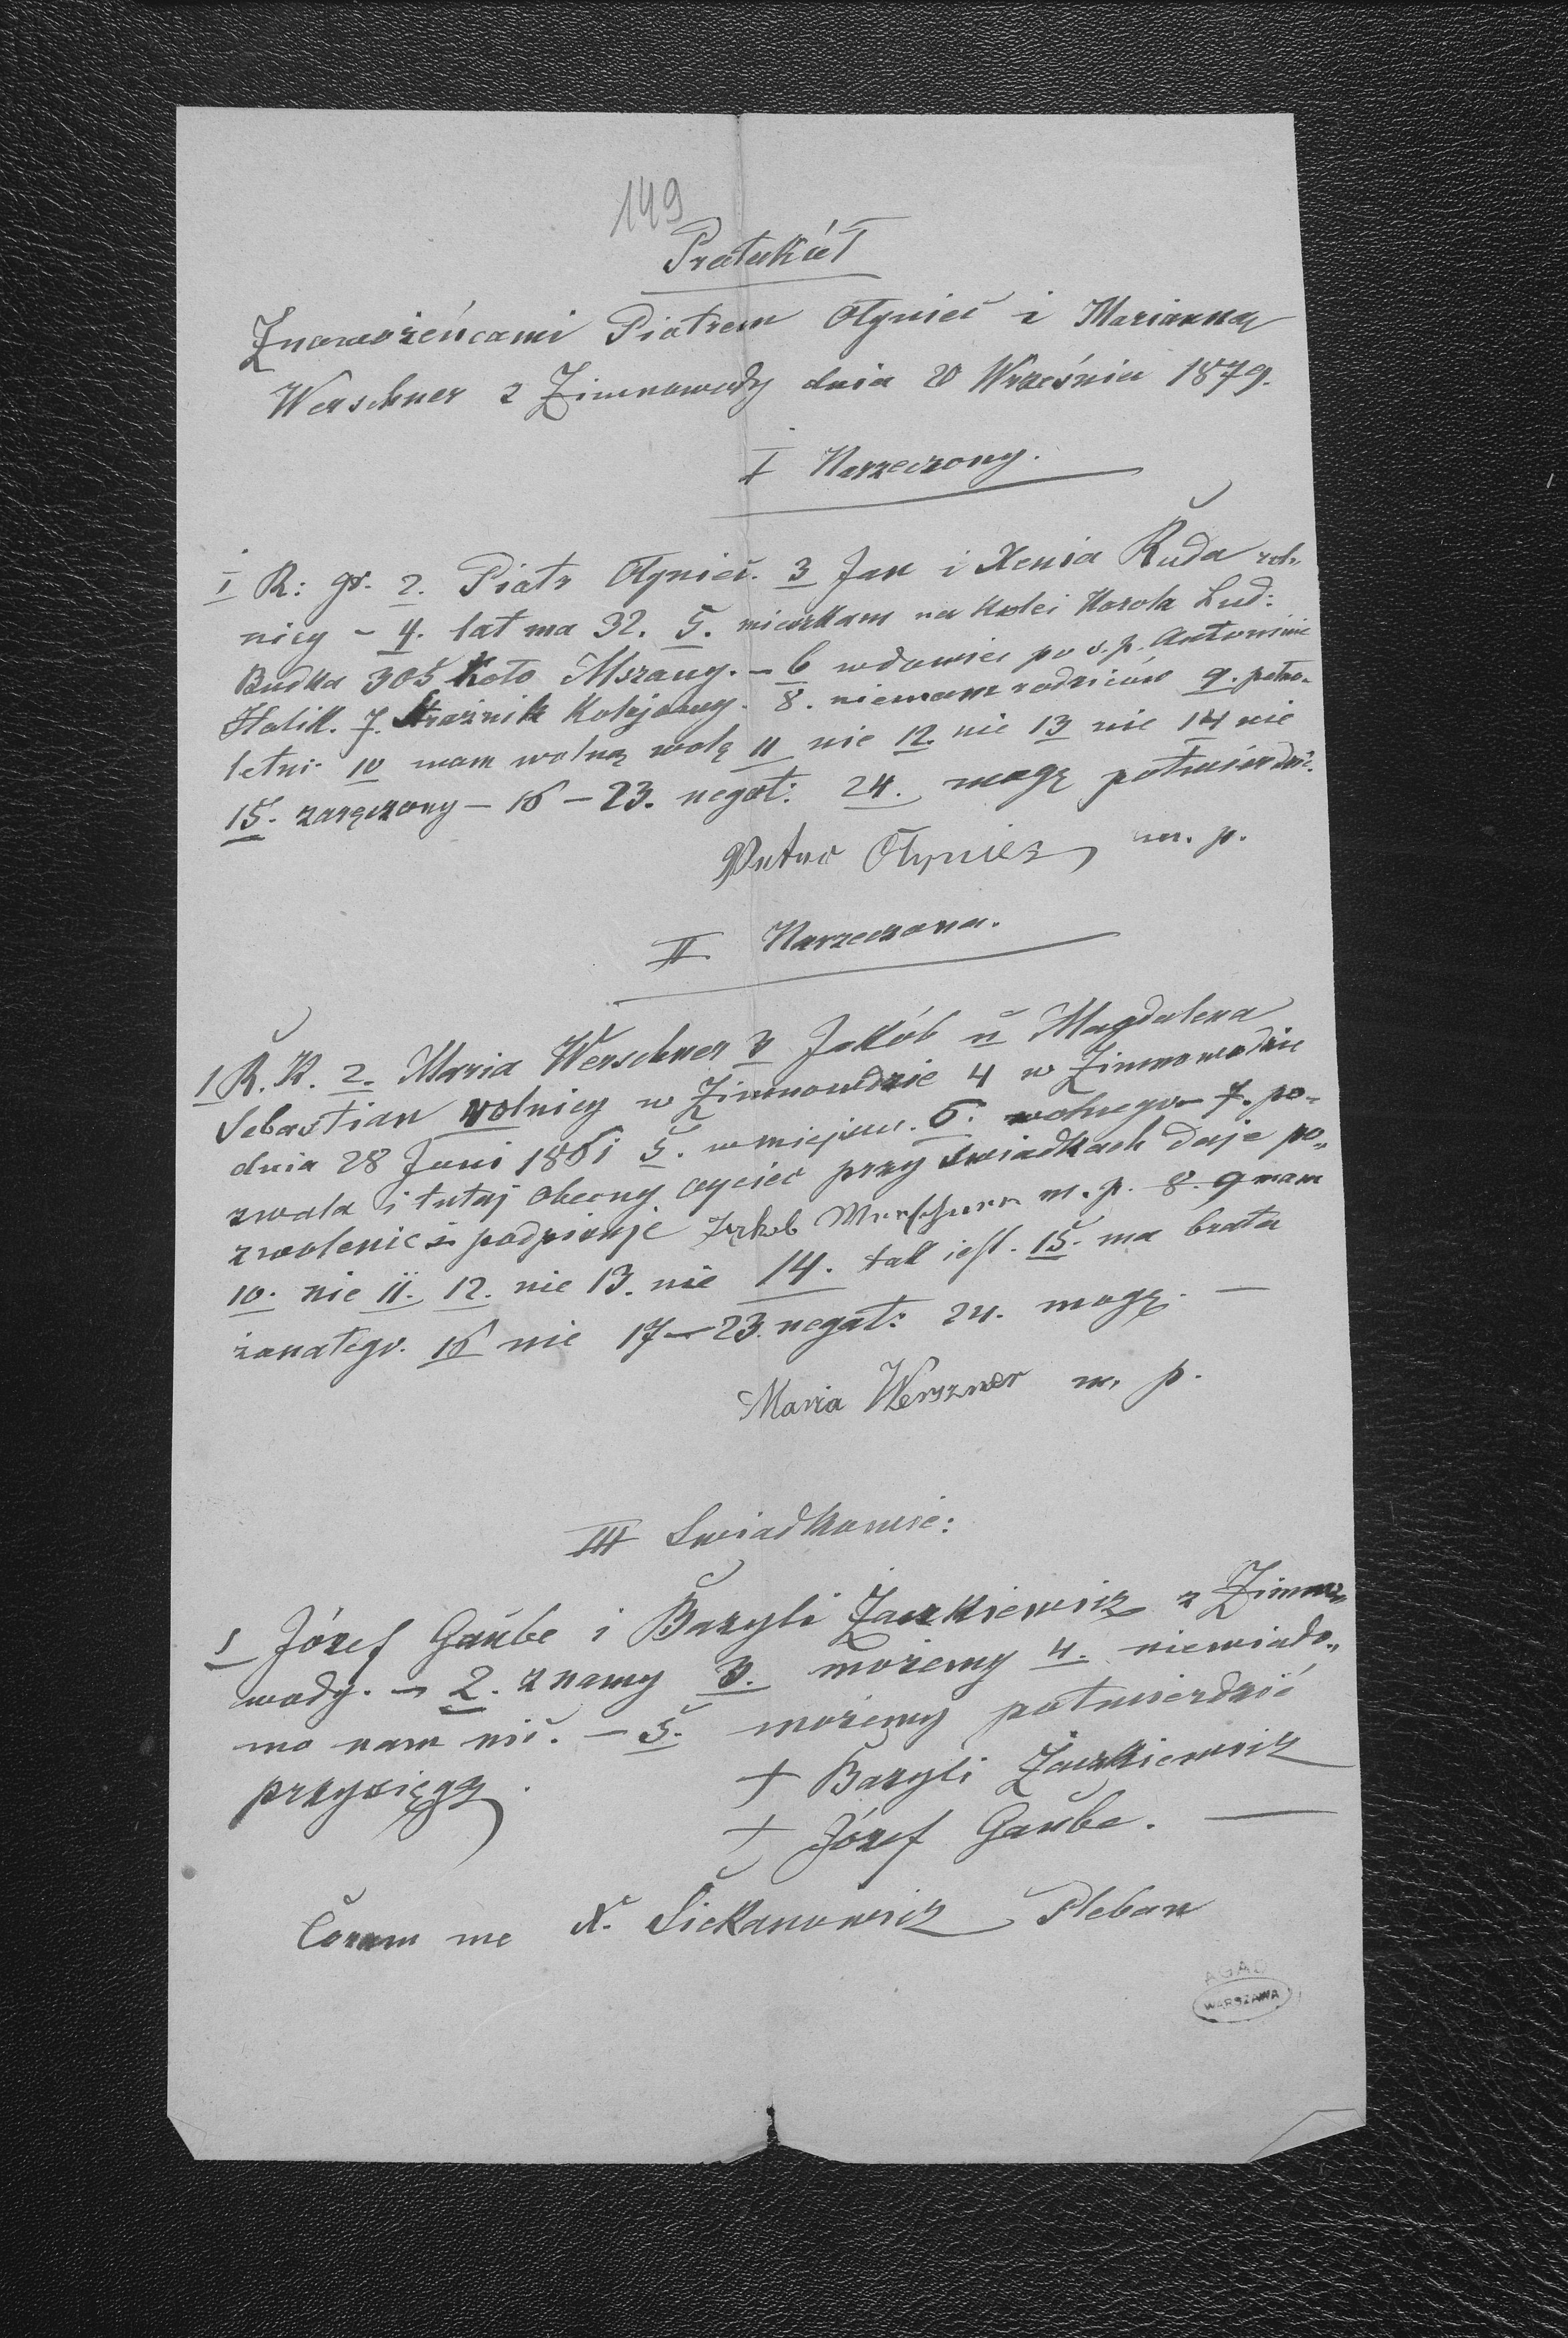 149
Protokół
Znowożeńcami Piotrem Ołyniec i Marianną
Werschner z Zimnowody dnia 20 Wrześniu 1879.
I Narzeczony.
I R: gr. 2. Piotr Ołyniec. 3 Jan i Xenia Ruda rol„
nicy – 4. lat ma 32. 5. mieszkam na kolei Karola Lud:
Budka 305 koło Mszany. – 6 wdowiec po ś.p. Antoninie
Halik. 7. Strażnik kolejowy. 8. niemam rodziców 9. pełno„
letni 10 mam wolną wolę 11 nie 12. nie 13 nie 14 nie
15. zaręczony – 16 – 23. negat: 24. mogę potwierdzić.
Ołyniec m. p.
II Narzeczona.
1 R. K. 2. Maria Werschner 3 Jakób u Magdalena
Sebastian rolnicy w Zimnowodzie 4 w Zimnowodzie
dnia 28 Juni 1861 5. w miejscu. 6. wolnego 7. po„
zwala i tutaj obecny ojciec przy świadkach daje po„
zwolenie i podpisuje Jakob m. p. 8. 9 mam
10. nie 11. 12. nie 13. nie 14. tak jest. 15. ma brata
żonatego. 16 nie 17 – 23. negat: 24. mogę. —
Maria Werszner m. p.
III Swiadkowie:
1 Józef Gaube i Bazyli Zaczkiewicz z Zimno„
wody. – 2. znamy 3. możemy 4. niewiado„
mo nam nic. – 5. możemy potwierdzić
przysięgą. + Bazyli Zaczkiewicz
+ Józef Gaube. —
Coram me X. Siekanowicz Pleban
AGAD
WARSZAWA